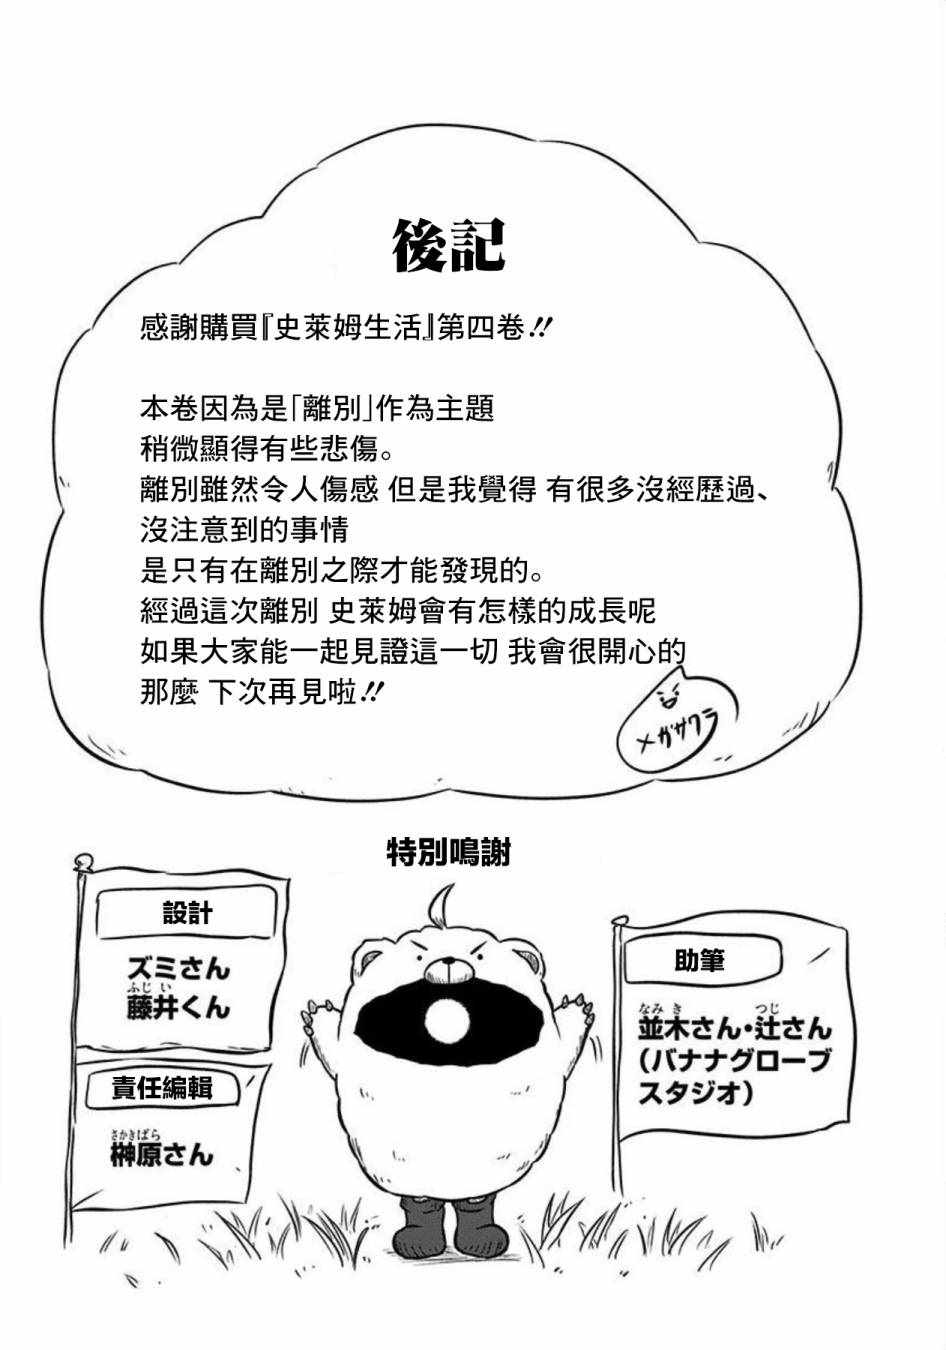 後記
感謝購買『史萊姆生活』第四卷!!
本卷因為是「離別」作為主題
稍微顯得有些悲傷。
離別雖然令人傷感 但是我覺得 有很多沒經歷過、
沒注意到的事情
是只有在離別之際才能發現的。
經過這次離別 史萊姆會有怎樣的成長呢
如果大家能一起見證這一切 我會很開心的
那麼 下次再見啦!!
メガサワラ
特別鳴謝
設計
ズミさん
ふじい
藤井くん
責任編輯
さかきばら
榊原さん
助筆
なみき つじ
並木さん・辻さん
(バナナグローブ
スタジオ)